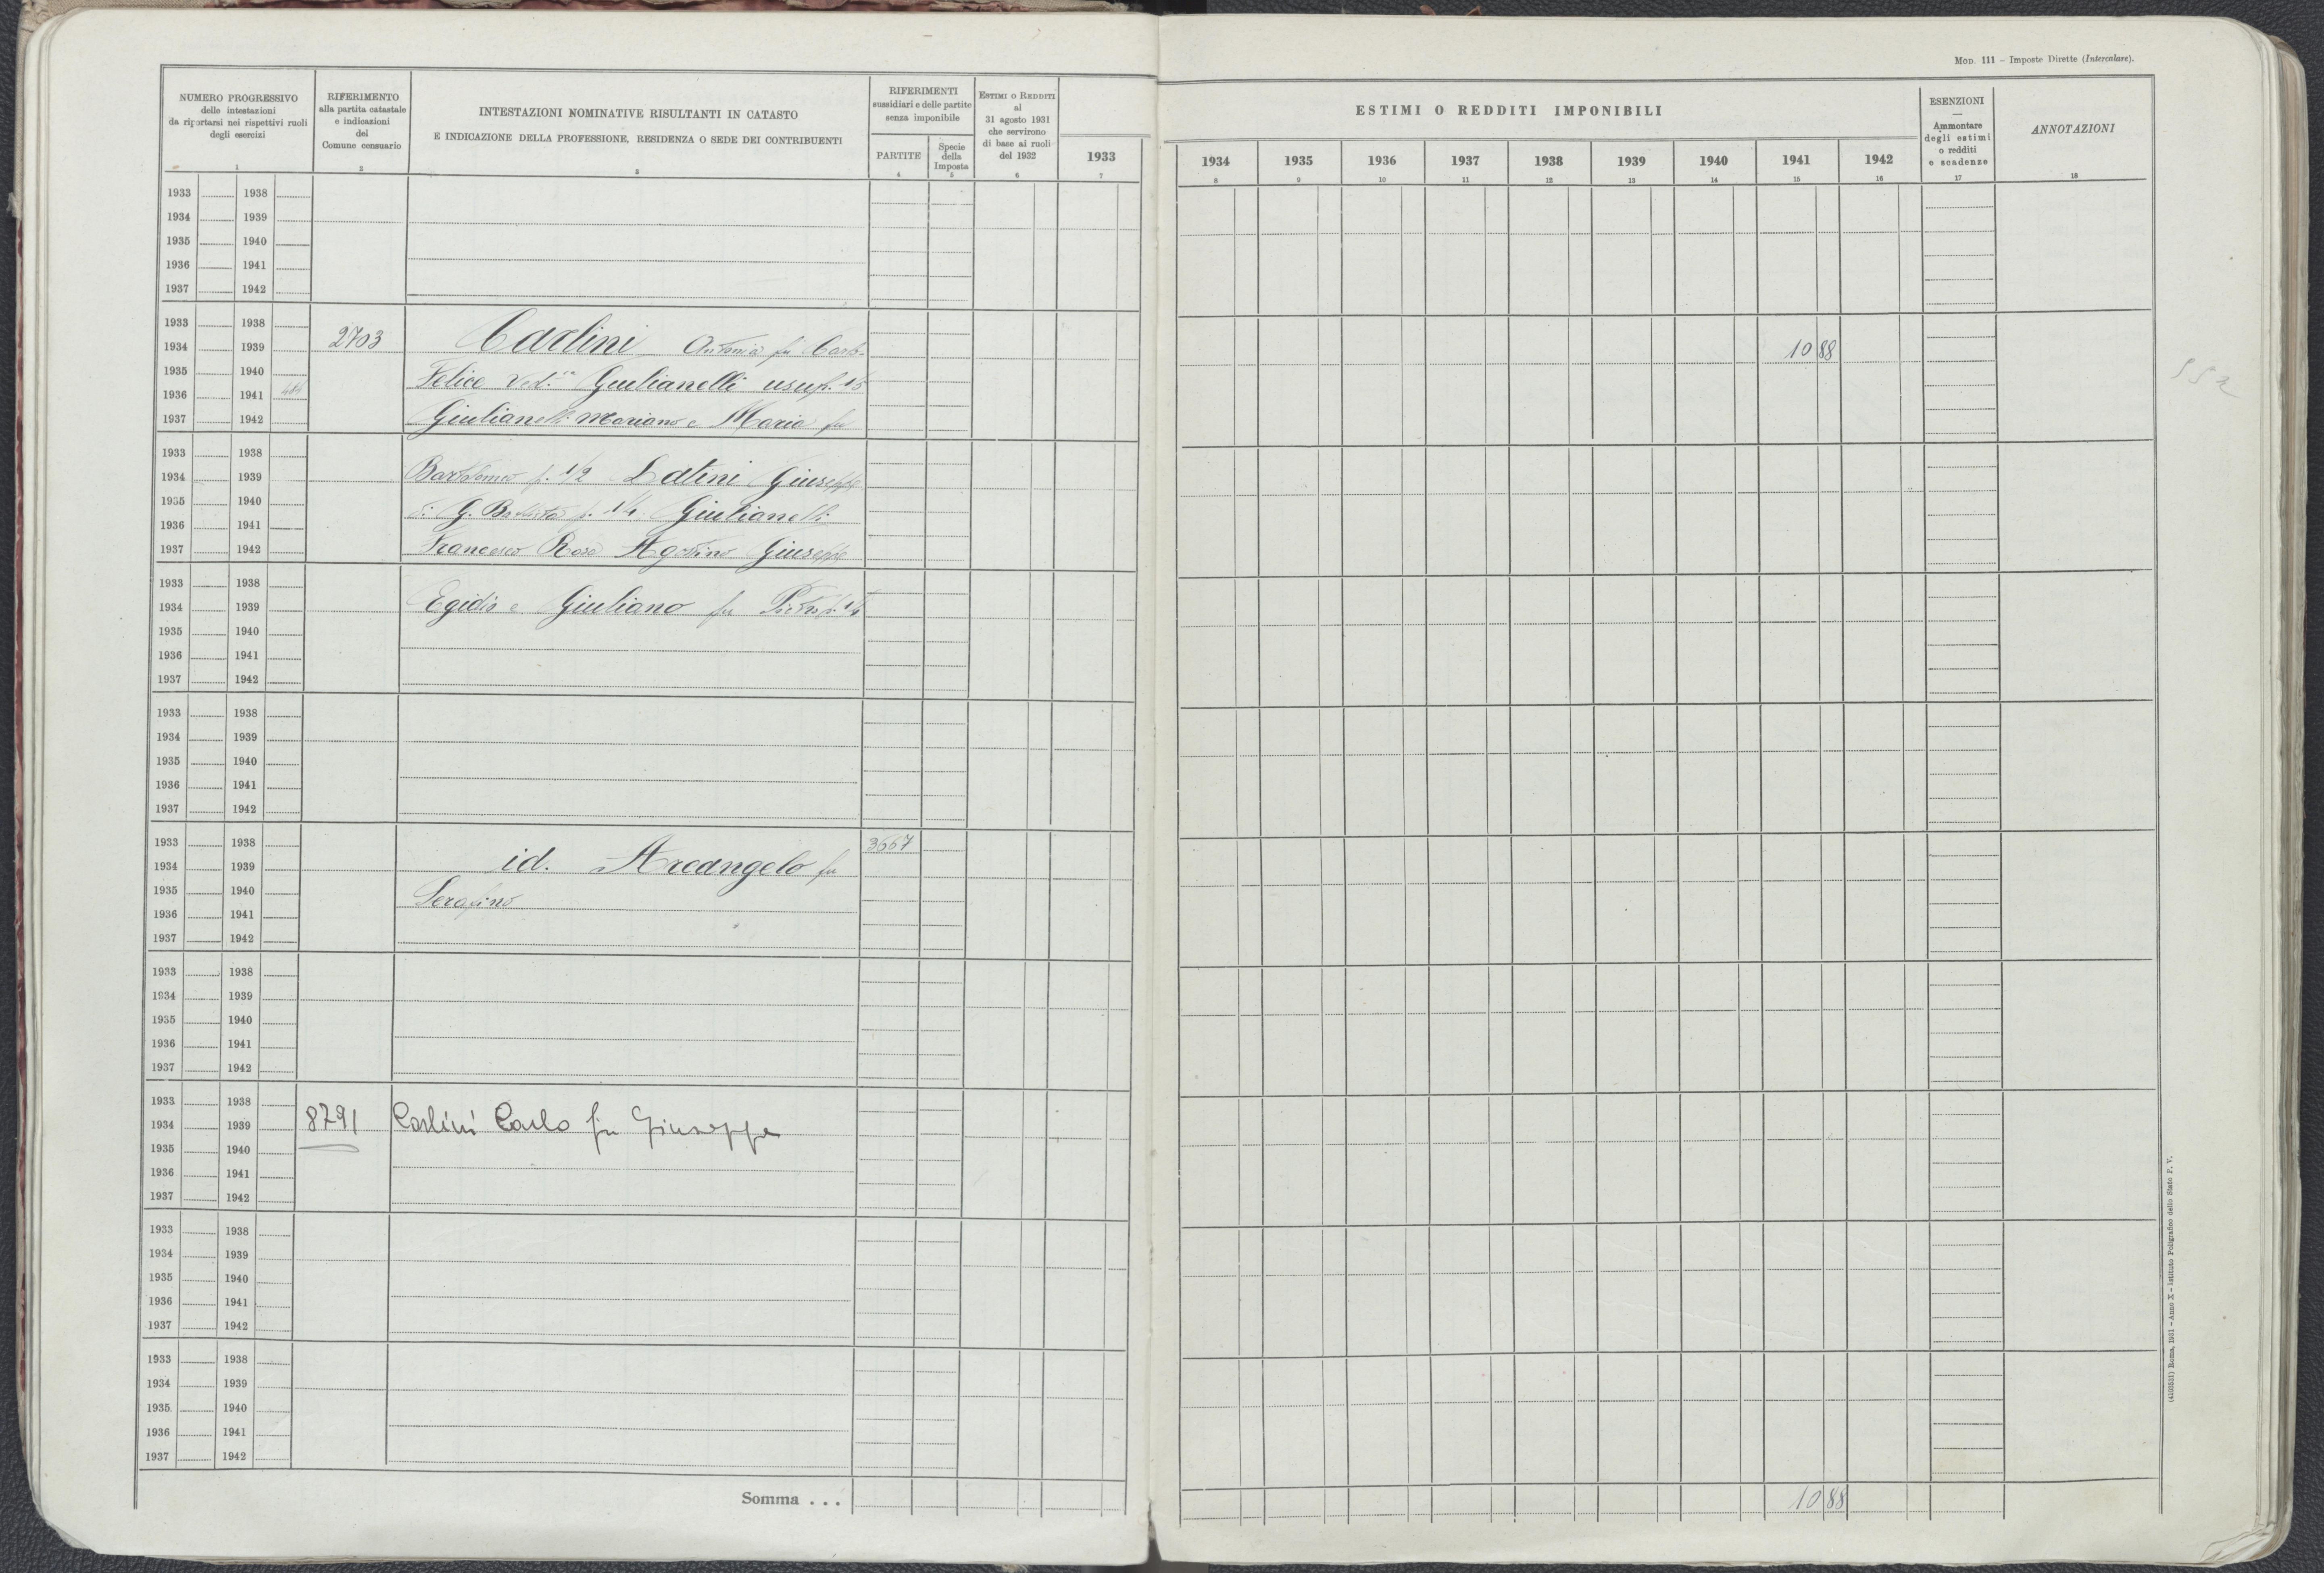 MOD. 111 – Imposte Dirette (Intercalare).
NUMERO PROGRESSIVO
delle intestazioni
da riportarsi nei rispettivi ruoli
degli esercizi
1
RIFERIMENTO
alla partita catastale
e indicazioni
del
Comune censuario
2
INTESTAZIONI NOMINATIVE RISULTANTI IN CATASTO
E INDICAZIONE DELLA PROFESSIONE, RESIDENZA O SEDE DEI CONTRIBUENTI
3
RIFERIMENTI
sussidiari e delle partite
senza imponibile
PARTITE
4
Specie
della
Imposta
5
ESTIMI O REDDITI
al
31 agosto 1931
che servirono
di base ai ruoli
del 1932
6
1933
7
ESTIMI O REDDITI IMPONIBILI
1934 1935 1936 1937 1938 1939 1940 1941 1942
8 9 10 11 12 13 14 15 16
ESENZIONI
—
Ammontare
degli estimi
o redditi
e scadenze
17
ANNOTAZIONI
18
1933 1938
1934 1939
1935 1940
1936 1941
1937 1942
1933 1938
1934 1939 2703 Carlini Antonia fu Carlo 10 88
1935 1940 Felice Ved. Giulianelli usuf. 1/3
1936 1941
1937 1942 Giulianelli Mariano e Maria fu
1933 1938
1934 1939 Bartolomeo p. 1/2 Latini Giuseppe
1935 1940 di G. Battista p. 1/4 Giulianelli
1936 1941
1937 1942 Francesco Rosa Agostino Giuseppe
1933 1938
1934 1939 Egidio e Giuliano fu Pietro p. 1/4
1935 1940
1936 1941
1937 1942
1933 1938
1934 1939
1935 1940
1936 1941
1937 1942
1933 1938 3667
1934 1939 id. Arcangelo fu
1935 1940 Serafino
1936 1941
1937 1942
1933 1938
1934 1939
1935 1940
1936 1941
1937 1942
1933 1938
1934 1939 8791 Carlini Carlo fu Giuseppe
1935 1940
1936 1941
1937 1942
1933 1938
1934 1939
1935 1940
1936 1941
1937 1942
1933 1938
1934 1939
1935 1940
1936 1941
1937 1942
Somma . . . 10 88
(4103531) Roma, 1931 – Anno X – Istituto Poligrafico dello Stato P. V.